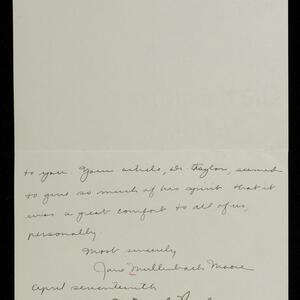 to you. Your article, Dr. Taylor, seemed
to give so much of his spirit that it
was a great comfort to all of us,
personally
Most sincerely
Jane Mullenbach Moore
April seventeenth